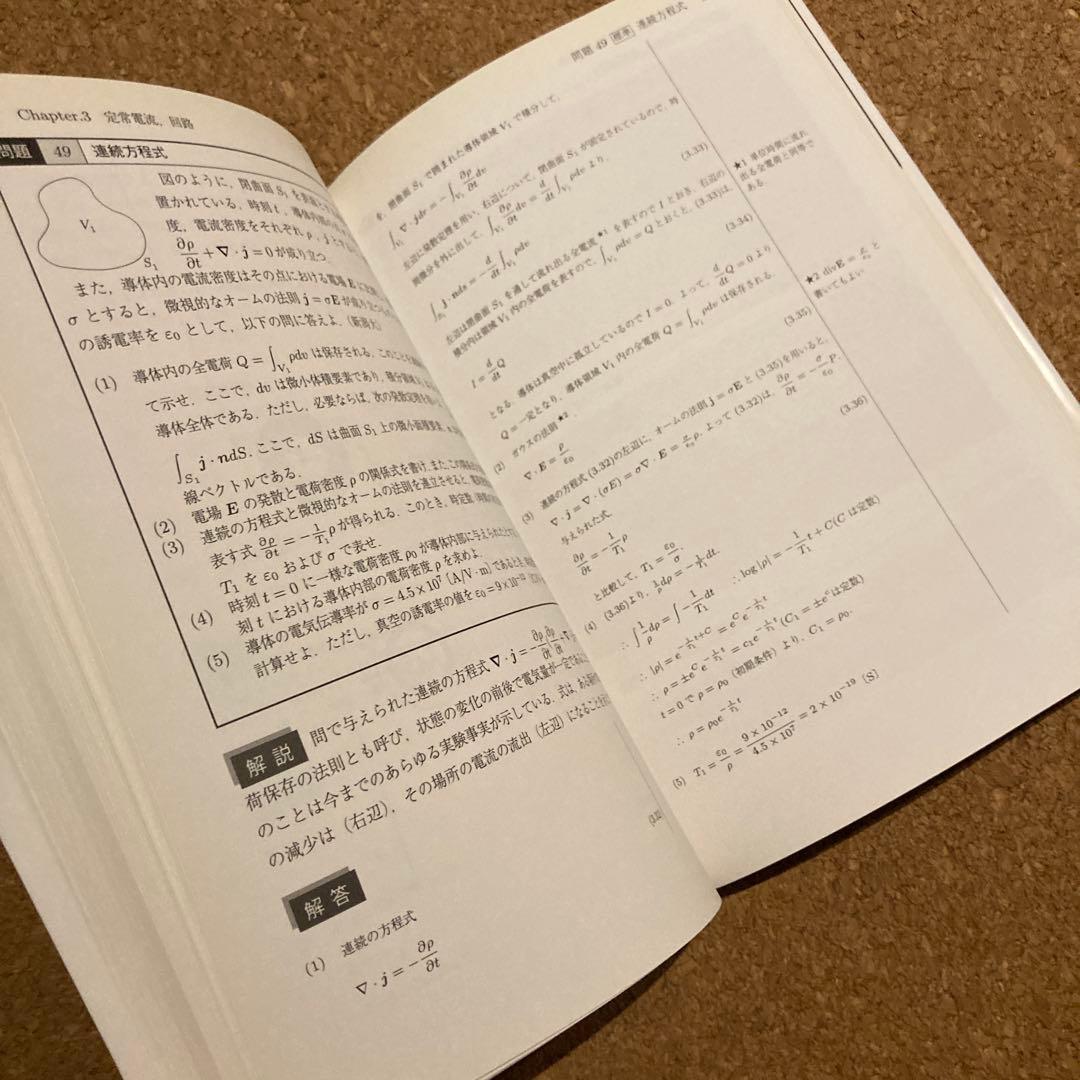 Chapter.3 定常電流,回路
問題 49 連続方程式
図のように,閉曲面 S₁ を
置かれている.時刻 t,導体内部の
度,電流密度をそれぞれ ρ,j とす
∂ρ/∂t + ∇・j = 0 が成り立つ.
V₁
S₁
また,導体内の電流密度はその点における電場 E に
σ とすると,微視的なオームの法則 j = σE が成り立つ
の誘電率を ε₀ として,以下の問に答えよ.(新潟大)
(1) 導体内の全電荷 Q = ∫_V₁ ρdv は保存される.このことを
て示せ.ここで,dv は微小体積要素であり,積分領域
導体全体である.ただし,必要ならば,次の発散定理を
∫_S₁ j・ndS.ここで,dS は曲面 S₁ 上の微小面積要素,
線ベクトルである.
(2) 電場 E の発散と電荷密度 ρ の関係式を書け.また,この
(3) 連続の方程式と微視的なオームの法則を連立させると,
表す式 ∂ρ/∂t = −(1/T₁)ρ が得られる.このとき,時定数
T₁ を ε₀ および σ で表せ.
(4) 時刻 t = 0 に一様な電荷密度 ρ₀ が導体内部に与えられた
刻 t における導体内部の電荷密度 ρ を求めよ.
(5) 導体の電気伝導率が σ = 4.5×10⁷ (A/V・m) であるとき,
計算せよ.ただし,真空の誘電率の値を ε₀ = 9×10⁻¹²
解説
問で与えられた連続の方程式 ∇・j = −∂ρ/∂t
荷保存の法則とも呼び,状態の変化の前後で電気量が一定である
のことは今までのあらゆる実験事実が示している.式は,ある
の減少は(右辺),その場所の電流の流出(左辺)になること
解答
(1) 連続の方程式
∇・j = −∂ρ/∂t
(3.32)
問題 49 標準 連続方程式
を,閉曲面 S₁ で囲まれた導体領域 V₁ で積分して,
∫_V₁ ∇・jdv = −∫_V₁ ∂ρ/∂t dv (3.33)
左辺に発散定理を用い,右辺について,閉曲面 S₁ が固定されているので,時
間積分を外に出して,∫_V₁ ∂ρ/∂t dv = d/dt ∫_V₁ ρdv より,
∫ j・nds = −d/dt ∫_V₁ ρdv (3.34)
左辺は閉曲面 S₁ を通して流れ出る全電流★1 を表すので I とおき,右辺の
積分内は領域 V₁ 内の全電荷を表すので,∫_V₁ ρdv = Q とおくと,(3.33)は,
I = d/dt Q
となる.導体は真空中に孤立しているので I = 0.よって,d/dt Q = 0 より
Q = 一定となり,導体領域 V₁ 内の全電荷 Q = ∫_V₁ ρdv は保存される.
(2) ガウスの法則★2
∇・E = ρ/ε₀ (3.35)
(3) 連続の方程式 (3.32) の左辺に,オームの法則 j = σE と (3.35) を用いると,
∇・j = ∇・(σE) = σ∇・E = (σ/ε₀)ρ.よって (3.32) は,∂ρ/∂t = −(σ/ε₀)ρ. (3.36)
与えられた式
∂ρ/∂t = −(1/T₁)ρ
と比較して,T₁ = ε₀/σ.
(4) (3.36) より,(1/ρ)dρ = −(1/T₁)dt.
∴ ∫(1/ρ)dρ = ∫−(1/T₁)dt ∴ log|ρ| = −(1/T₁)t + C (C は定数)
∴ |ρ| = e^(−(1/T₁)t+C) = e^C e^(−(1/T₁)t)
∴ ρ = ±e^C e^(−(1/T₁)t) = c₁e^(−(1/T₁)t) (C₁ = ±e^c は定数)
t = 0 で ρ = ρ₀ (初期条件) より,C₁ = ρ₀.
∴ = ρ₀e^(−(1/T₁)t)
(5) T₁ = ε₀/ρ = (9×10⁻¹²)/(4.5×10⁷) = 2×10⁻¹⁹ [S]
★1 単位時間に流れ
出る全電荷と同等で
ある.
★2 divE = ρ/ε₀ と
書いてもよい